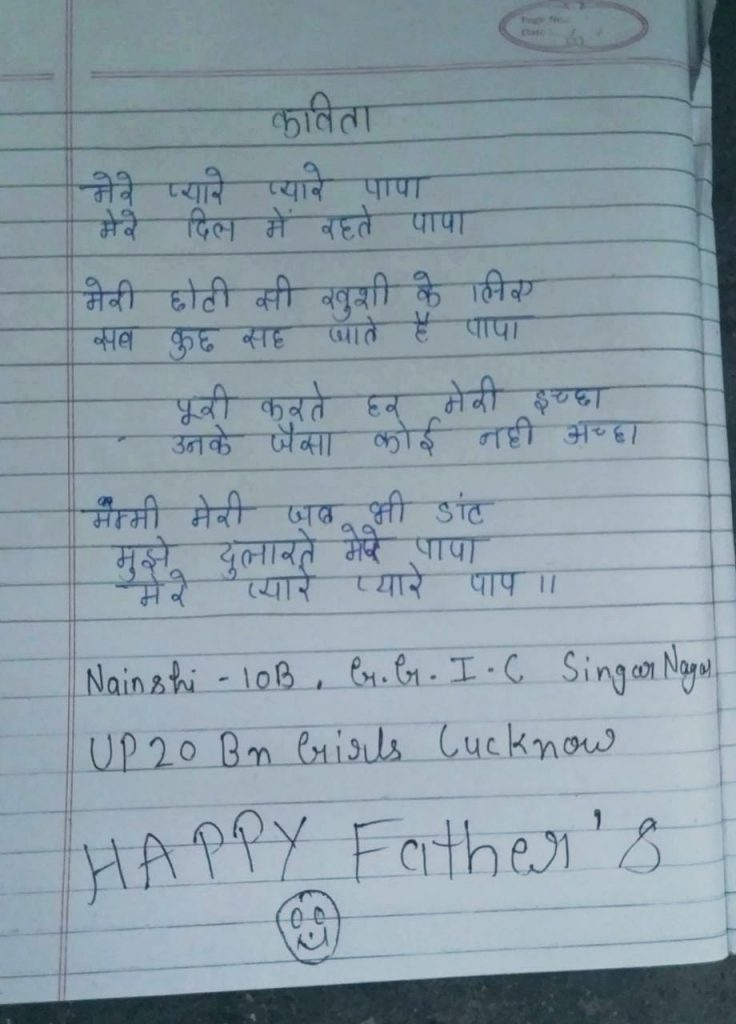 Page No.
Date
कविता
मेरे प्यारे प्यारे पापा
मेरे दिल में रहते पापा
मेरी छोटी सी खुशी के लिए
सब कुछ सह जाते है पापा
पूरी करते हर मेरी इच्छा
उनके जैसा कोई नही अच्छा
मम्मी मेरी जब भी डांट
मुझे दुलारते मेरे पापा
मेरे प्यारे प्यारे पाप ॥
Nainshi - 10B. G.G. I.C Singar Nagar
UP 20 Bn Girls Lucknow
HAPPY Father's